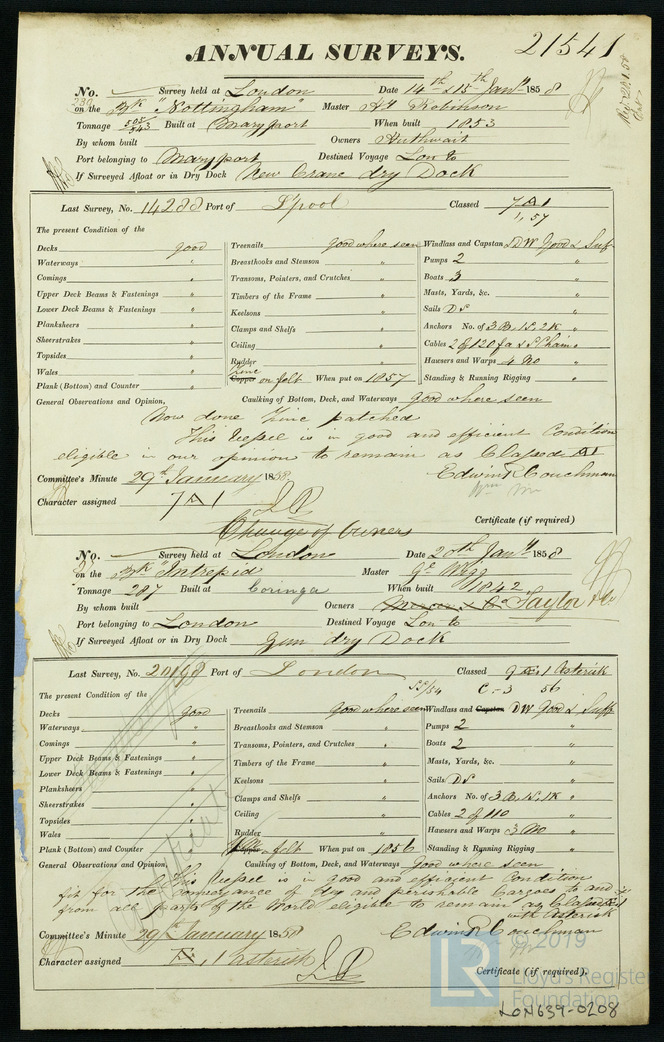 ANNUAL SURVEYS. 21541
No. Survey held at London Date 14th & 15th Jany 1858
on the Bk "Nottingham" Master Robinson
Tonnage 505/543 Built at Maryport When built 1853
By whom built Owners
Port belonging to Maryport Destined Voyage Lon to
If Surveyed Afloat or in Dry Dock New Crane dry Dock
Last Survey, No. 14288 Port of L'pool Classed 7 A 1
1, 57
The present Condition of the
Decks good Treenails good where seen Windlass and Capstan DW Good & Suff
Waterways " Breasthooks and Stemson " Pumps 2 "
Comings " Transoms, Pointers, and Crutches " Boats 3 "
Upper Deck Beams & Fastenings " Timbers of the Frame " Masts, Yards, &c. "
Lower Deck Beams & Fastenings " Keelsons " Sails DS "
Planksheers " Clamps and Shelfs " Anchors No. of 3 B, 1S, 2K "
Sheerstrakes " Ceiling " Cables 2 of 120 fa & S Chain "
Topsides " Rudder " Hawsers and Warps 4 No "
Wales " Zinc Copper on felt When put on 1857 Standing & Running Rigging "
Plank (Bottom) and Counter " Caulking of Bottom, Deck, and Waterways Good where seen
General Observations and Opinion,
Now done Zinc patched
This Vessel is in good and efficient Condition
eligible in our opinion to remain as Classed A1
Committee's Minute 29th January 1858 Edwin R Couchman
Character assigned 7 A 1
Certificate (if required)
Change of Owners
No. Survey held at London Date 20th Jany 1858
on the Bk "Intrepid Master Ge Wigg
Tonnage 287 Built at Coringa When built 1842
By whom built Owners Taylor & Co
Port belonging to London Destined Voyage Lon to
If Surveyed Afloat or in Dry Dock Gun dry Dock
Last Survey, No. 20198 Port of London Classed 9 Æ, 1 Asterisk
SS/54 C-3 56
The present Condition of the
Decks good Treenails good where seen Windlass and Capstan DW Good & Suff
Waterways " Breasthooks and Stemson " Pumps 2 "
Comings " Transoms, Pointers, and Crutches " Boats 2 "
Upper Deck Beams & Fastenings " Timbers of the Frame " Masts, Yards, &c. "
Lower Deck Beams & Fastenings " Keelsons " Sails DS "
Planksheers " Clamps and Shelfs " Anchors No. of 3 B, 1S, 1K "
Sheerstrakes " Ceiling " Cables 2 of 110 "
Topsides " Rudder " Hawsers and Warps 3 No "
Wales " felt When put on 1856 Standing & Running Rigging "
Plank (Bottom) and Counter " Caulking of Bottom, Deck, and Waterways Good where seen
General Observations and Opinion,
This Vessel is in good and efficient Condition
fit for the conveyance of dry and perishable Cargoes to and
from all parts of the World eligible to remain as Classed
with Asterisk
Committee's Minute 29th January 1858 Edwin R Couchman
Character assigned Æ, 1 asterisk
Certificate (if required).
LR © 2019
Lloyd's Register
Foundation
LON639-0208